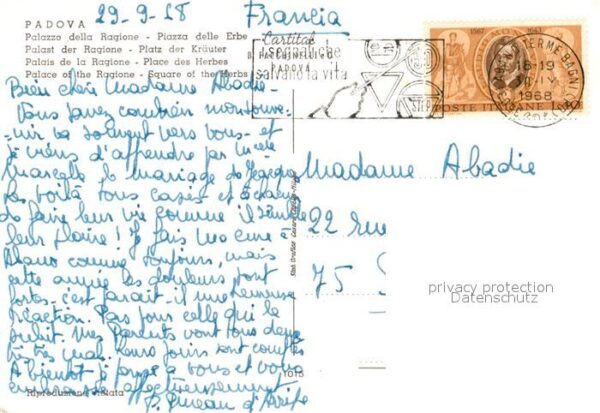 29-9-68 Francia
PADOVA
Palazzo della Ragione - Piazza delle Erbe
Palast der Ragione - Platz der Kräuter
Palais de la Ragione - Place des Herbes
Palace of the Ragione - Square of the Herbs
i segnali che
salvano la vita
PADOVA
STOP
1867 1967
POSTE ITALIANE L.40
TERME
18-19
1968
Bien chère Madame Abadie-
Vous savez combien mon souve-
nir va souvent vers vous - et
je viens d'apprendre par
Marcelle le mariage de
les voilà tous casés et à chacun
de faire leur vie comme il semble
leur plaire! Je fais ma cure à
Abano comme toujours, mais
cette année les douleurs sont
fortes - c'est paraît-il une heureuse
réaction. Pas pour celle qui la
subit. Mes Parents vont tous deux
très mal. Leurs jours sont comptés
A bientôt je pense à vous et vous
embrasse affectueusement
Madame Abadie
22 rue
75 S
privacy protection
Datenschutz
1016
Riproduzione vietata